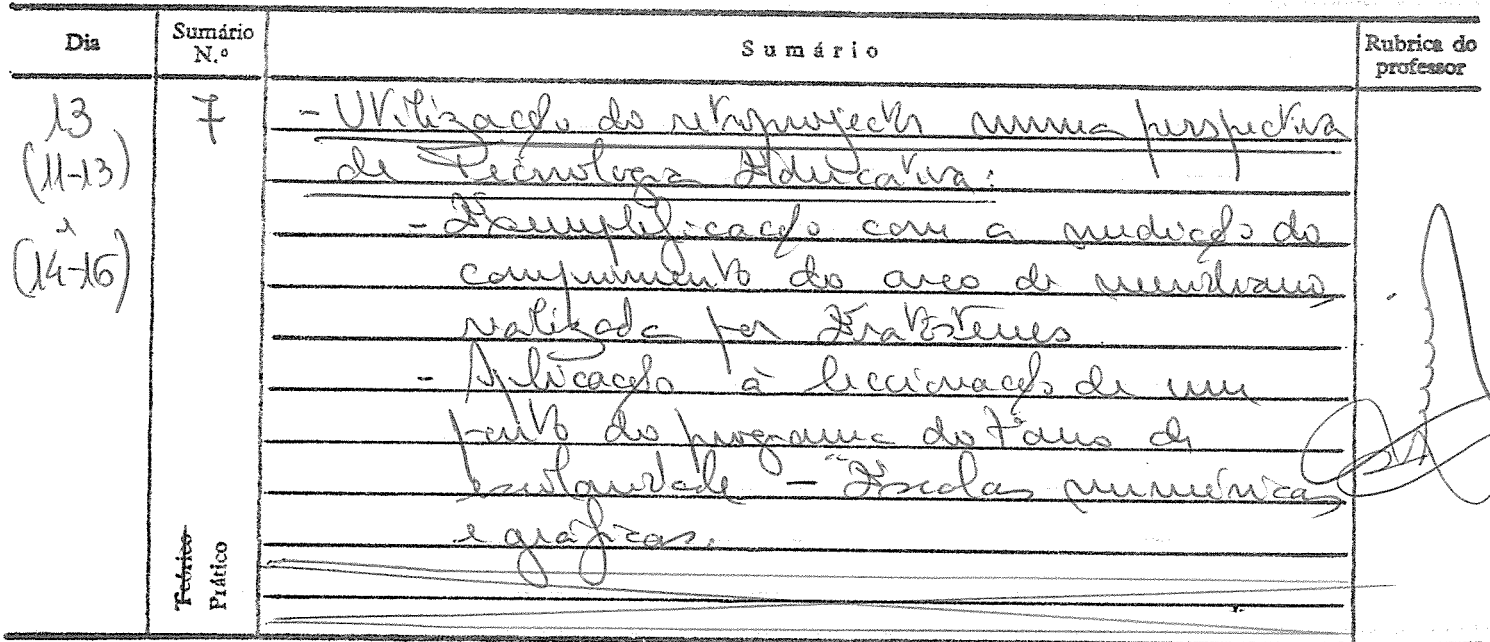 Dia
Sumário N.º
Sumário
Rubrica do professor
13
(11-13)
e
(14-16)
7
- Utilização do retroprojector numa perspectiva
de Tecnologia Educativa:
- Exemplificação com a medição do
comprimento do arco de meridiano,
realizada por Eratóstenes
- Aplicação à leccionação de um
ponto do programa do 7º ano de
escolaridade - Escalas numéricas
e gráficas.
Teórico
Prático